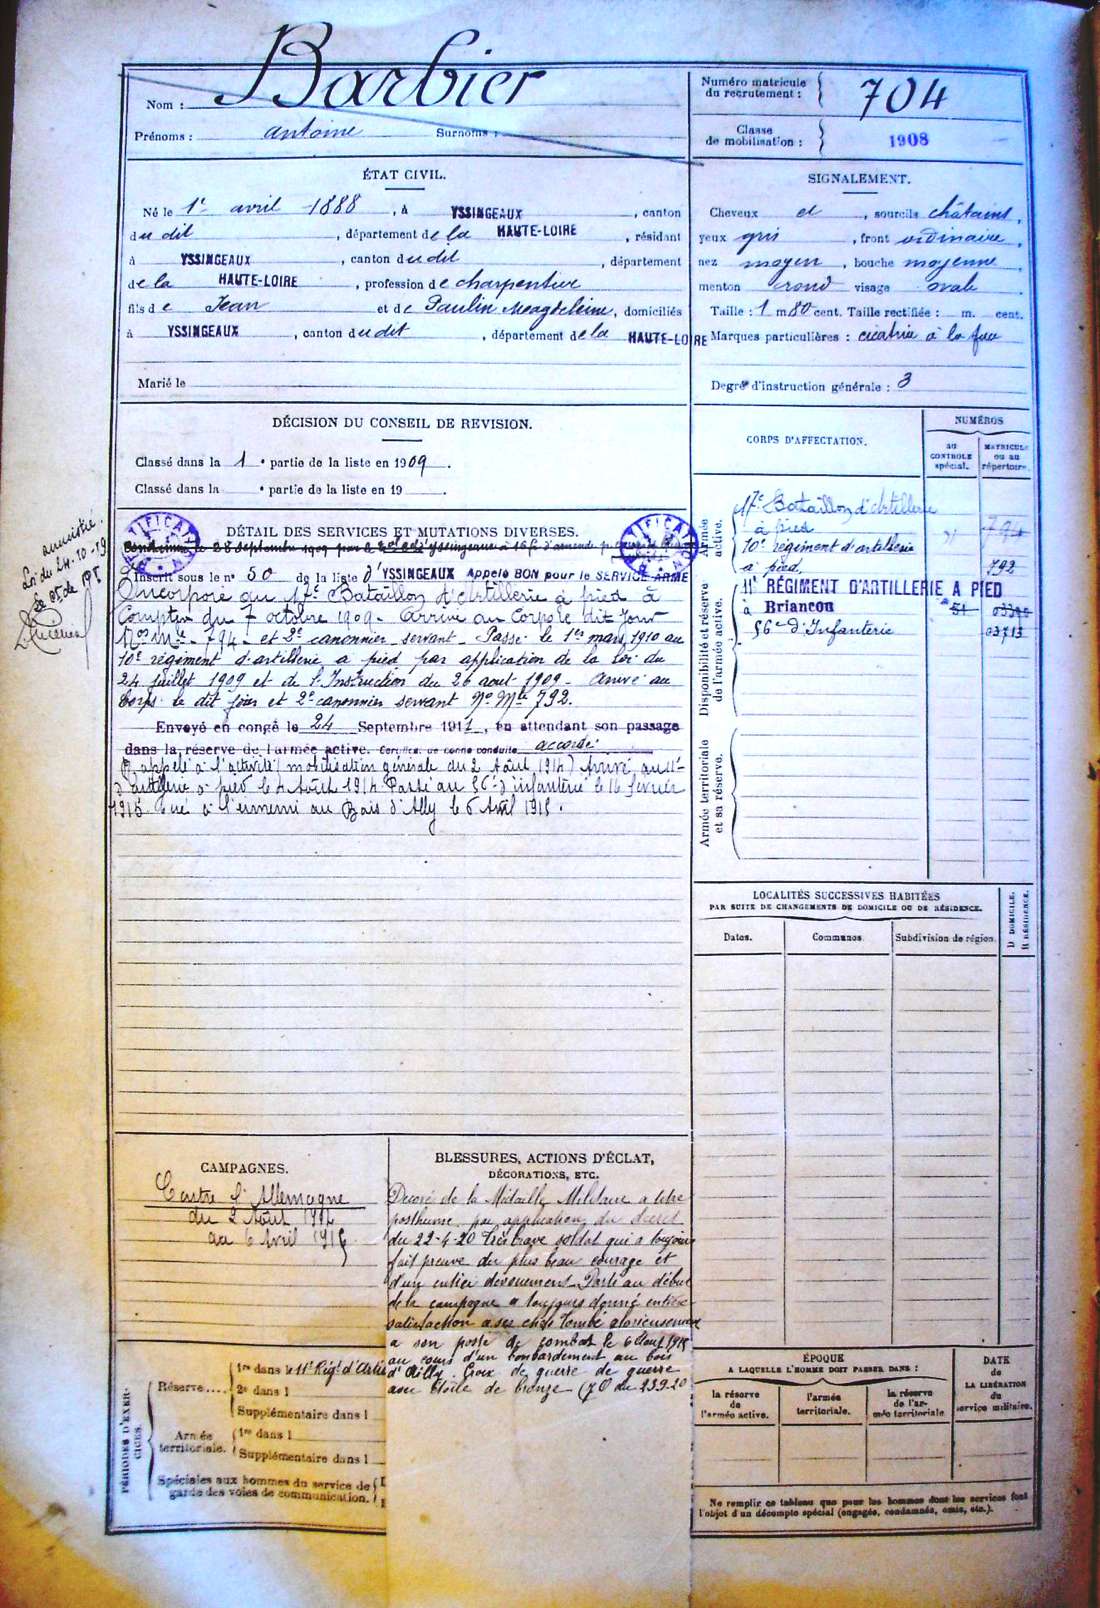 Nom : Barbier
Prénoms : antoine Surnoms :
Numéro matricule
du recrutement : 704
Classe
de mobilisation : 1908
ÉTAT CIVIL.
Né le 1er avril 1888, à YSSINGEAUX, canton
dudit, département de la HAUTE-LOIRE, résidant
à YSSINGEAUX, canton dudit, département
de la HAUTE-LOIRE, profession de charpentier
fils de Jean et de Paulin Magdeleine, domiciliés
à YSSINGEAUX, canton dudit, département de la HAUTE-LOIRE
Marié le
SIGNALEMENT.
Cheveux et, sourcils châtains,
yeux gris, front ordinaire,
nez moyen, bouche moyenne
menton rond visage ovale
Taille : 1 m 80 cent. Taille rectifiée : m. cent.
Marques particulières : cicatrice à la face
Degré d'instruction générale : 3
DÉCISION DU CONSEIL DE REVISION.
Classé dans la 1e partie de la liste en 1909.
Classé dans la e partie de la liste en 19
CORPS D'AFFECTATION.
NUMÉROS
AU
CONTROLE
spécial.
MATRICULE
OU AU
répertoire.
Armée
active.
17e Bataillon d'Artillerie
à pied 794
10e régiment d'artillerie
à pied. 792
Disponibilité et réserve
de l'armée active.
11e RÉGIMENT D'ARTILLERIE A PIED
à Briançon 51
56e d'Infanterie 03713
Armée territoriale
et sa réserve.
amnistie.
Loi du 24-10-19
DÉTAIL DES SERVICES ET MUTATIONS DIVERSES.
le 28 septembre 1909 d'Yssingeaux à 16f d'amende
Inscrit sous le no 50 de la liste d'YSSINGEAUX Appelé BON pour le SERVICE ARMÉ
Incorporé au 17e Bataillon d'Artillerie à pied à
Compter du 7 octobre 1909. Arrivé au Corps le dit jour
No Mle 794 et 2e canonnier servant. Passé le 1er mars 1910 au
10e régiment d'artillerie à pied par application de la loi du
24 juillet 1909 et de l'Instruction du 20 aout 1909. arrivé au
Corps le dit jour et 2e canonnier servant No Mle 792.
Envoyé en congé le 24 Septembre 1911, en attendant son passage
dans la réserve de l'armée active. Certificat de bonne conduite accordé
Rappelé à l'activité (mobilisation générale du 2 Août 1914) Arrivé au 11e
d'artillerie à pied le 4 Août 1914 Passé au 56e d'infanterie le 16 février
1915 Tué à l'ennemi au Bois d'Ailly le 6 Avril 1915.
LOCALITÉS SUCCESSIVES HABITÉES
PAR SUITE DE CHANGEMENTS DE DOMICILE OU DE RÉSIDENCE.
Dates. Communes. Subdivision de région.
D DOMICILE.
R RÉSIDENCE.
CAMPAGNES.
Contre l'Allemagne
du 2 Août 1914
au 6 Avril 1915
BLESSURES, ACTIONS D'ÉCLAT,
DÉCORATIONS, ETC.
Décoré de la Médaille Militaire a titre
posthume par application du décret
du 22-4-20 Très brave soldat qui a toujours
fait preuve du plus beau courage et
d'un entier dévouement. Parti au début
de la campagne a toujours donné entière
satisfaction a ses chefs Tombé glorieusement
a son poste de combat le 6 1915
au cours d'un bombardement au bois
d'Ailly. Croix de guerre de guerre
avec étoile de bronze (JO du 23.9.20
PÉRIODES D'EXERCICES.
Réserve.... 1re dans le 11e Régt d'Artie
2e dans l
Supplémentaire dans l
Armée
territoriale. 1re dans l
Supplémentaire dans l
Spéciales aux hommes du service de
garde des voies de communication.
ÉPOQUE
A LAQUELLE L'HOMME DOIT PASSER DANS :
la réserve
de
l'armée active.
l'armée
territoriale.
la réserve
de l'ar-
mée territoriale
DATE
de
LA LIBÉRATION
du
service militaire.
Ne remplir ce tableau que pour les hommes dont les services font
l'objet d'un décompte spécial (engagés, condamnés, omis, etc.).